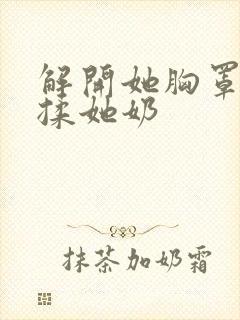 解開她胸罩
揉她奶
抹茶加奶霜